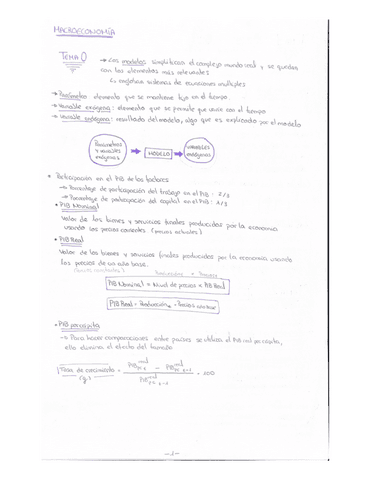 MACROECONOMÍA
TEMA 0
→ Los modelos simplifican el complejo mundo real y se quedan
con los elementos más relevantes
↳ sistemas de ecuaciones múltiples
→ Parámetro: elemento que se mantiene fijo en el tiempo
→ Variable exógena: elemento que se permite que varíe con el tiempo
→ Variable endógena: resultado del modelo, algo que es explicado por el modelo
Parámetros y variables exógenas → MODELO → VARIABLES endógenas
• Participación en el PIB de los factores
→ Porcentaje de participación del trabajo en el PIB: 2/3
→ Porcentaje de participación del capital en el PIB: 1/3
• PIB Nominal
Valor de los bienes y servicios finales producidos por la economía
usando los precios corrientes (precios actuales)
• PIB Real
Valor de los bienes y servicios finales producidos por la economía usando
los precios de un año base.
(precios constantes)
PIB Nominal = Nivel de precios × PIB Real
PIB Real = Producción × Precios
• PIB per cápita
→ Para hacer comparaciones entre países se utiliza el PIB real per cápita,
ello elimina el efecto del tamaño
Tasa de crecimiento (g) = × 100
-1-